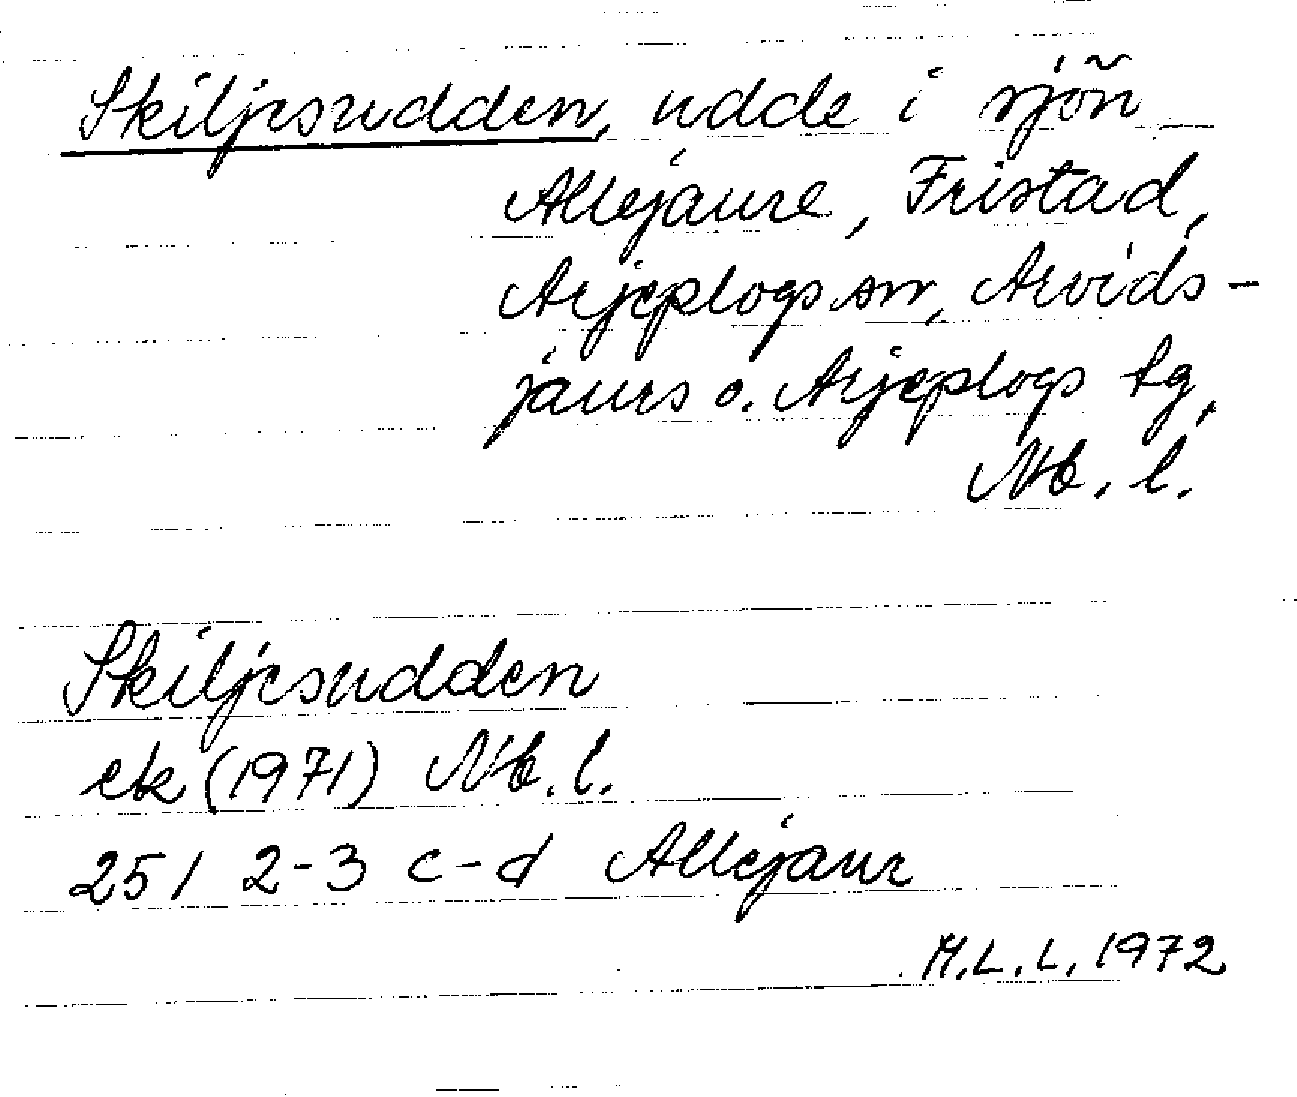 Skiljesudden, udde i sjön
Allejaure, Fristad,
Arjeplogs sn, Arvids-
jaurs o. Arjeplogs tg,
Nb. l.
Skiljesudden
ek (1971) Nb. l.
25 I 2-3 c-d Allejaur
M.L.L. 1972